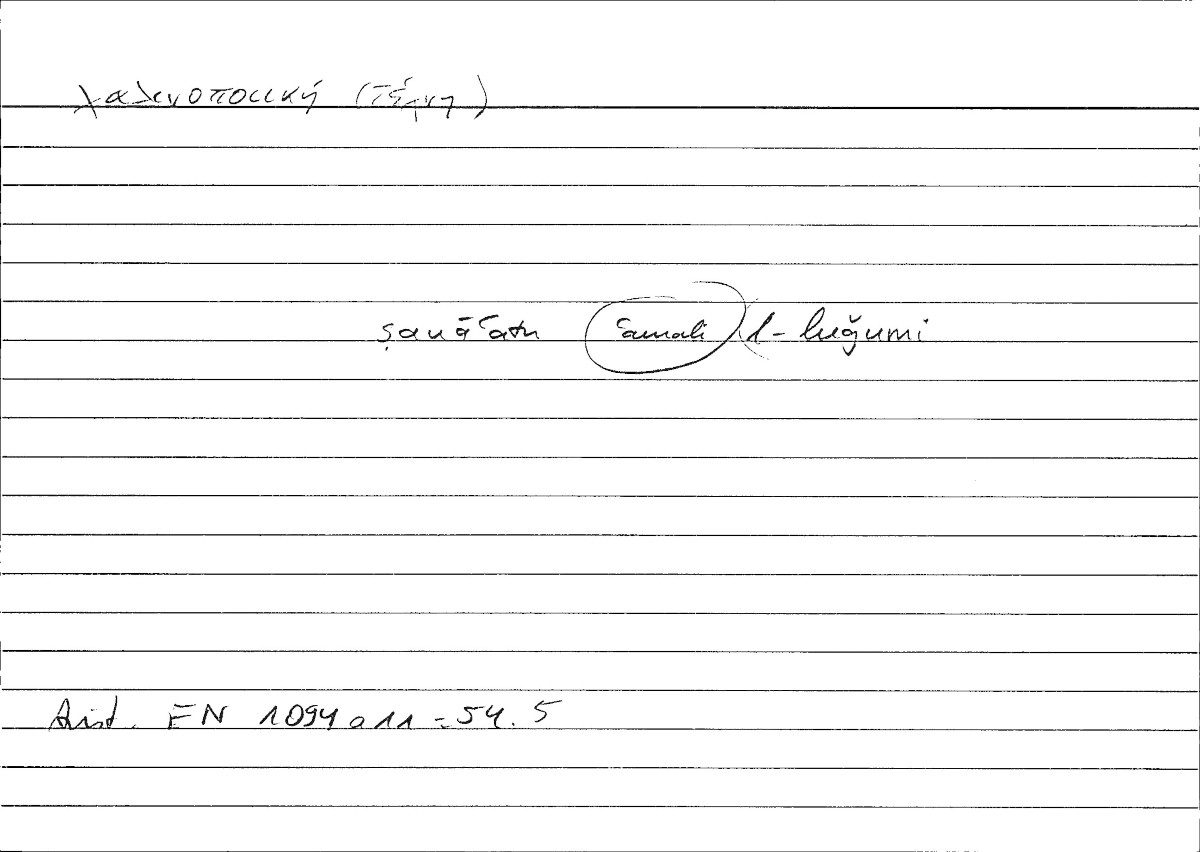 χαλινοποιική (τέχνη)
ṣanāʿatu ʿamali l-luǧumi
Arist. EN 1094 a 11 = 54.5